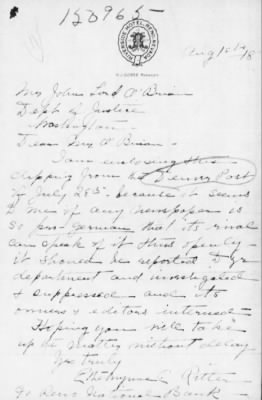 158965
RIVERSIDE HOTEL-RENO-NEVADA
Aug 1st 18
Mr John Lord O'Brian
Dep't of Justice
Washington -
Dear Mr O'Brian -
I am enclosing this
clipping from the Denver Post
of July 28th because it seems
to me if any newspaper is
so pro-German that its rival
can speak of it thus openly -
it should be reported to yr
department and investigated
& suppressed and its
owners & editors interned -
Hoping you will take
up the matter without delay
Yrs truly
Ritter -
% Reno National Bank -